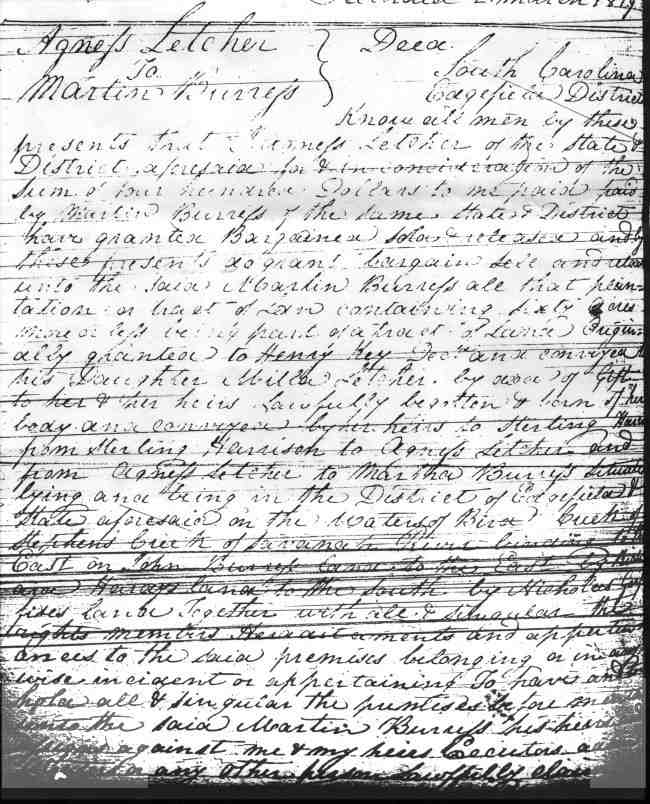 Recorded 2 March 1819
Agness Letcher } Deed
To South Carolina
Martin Burress Edgefield District
Know all men by these
presents that I Agness Letcher of the State &
District aforesaid for & in consideration of the
sum of hundred Dollars to me paid paid
by Martin Burress of the same State & District
have granted Bargained sold & released and by
these presents do grant bargain sell and release
unto the said Martin Burress all that plan
tation or tract of Land containing sixty acres
more or less being part of a tract of Land Origin
ally granted to Henry Key Decd and conveyed to
his Daughter Milla Letcher by deed of Gift
to her & her heirs Lawfully begotten & born of her
body and conveyed by her heirs to Sterling
from Sterling Harrison to Agness Letcher and
from Agness Letcher to Martha Burress situate
lying and being in the District of Edgefield &
State aforesaid on the Waters of Bird Creek of
Stephens Creek of Savanah River binding to
East on John Burress land to the East by
and Harris land to the South by Nicholas
land Together with all & singular the
rights members Heraditaments and appurten
ances to the said premises belonging or in any
wise incident or appertaining To have and to
hold all & singular the premises before
unto the said Martin Burress his heirs
against me & my heirs Executors
any other person lawfully